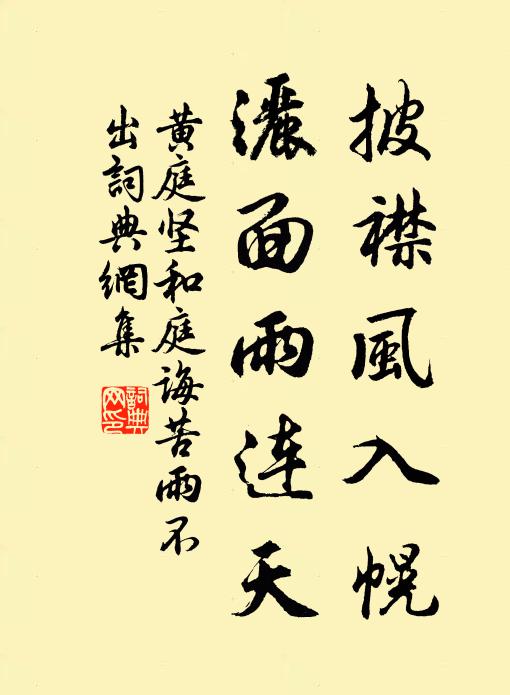 披襟風入幌
灑面雨连天
黄庭坚和庭誨苦雨不
出詞典網集
詞典
网印